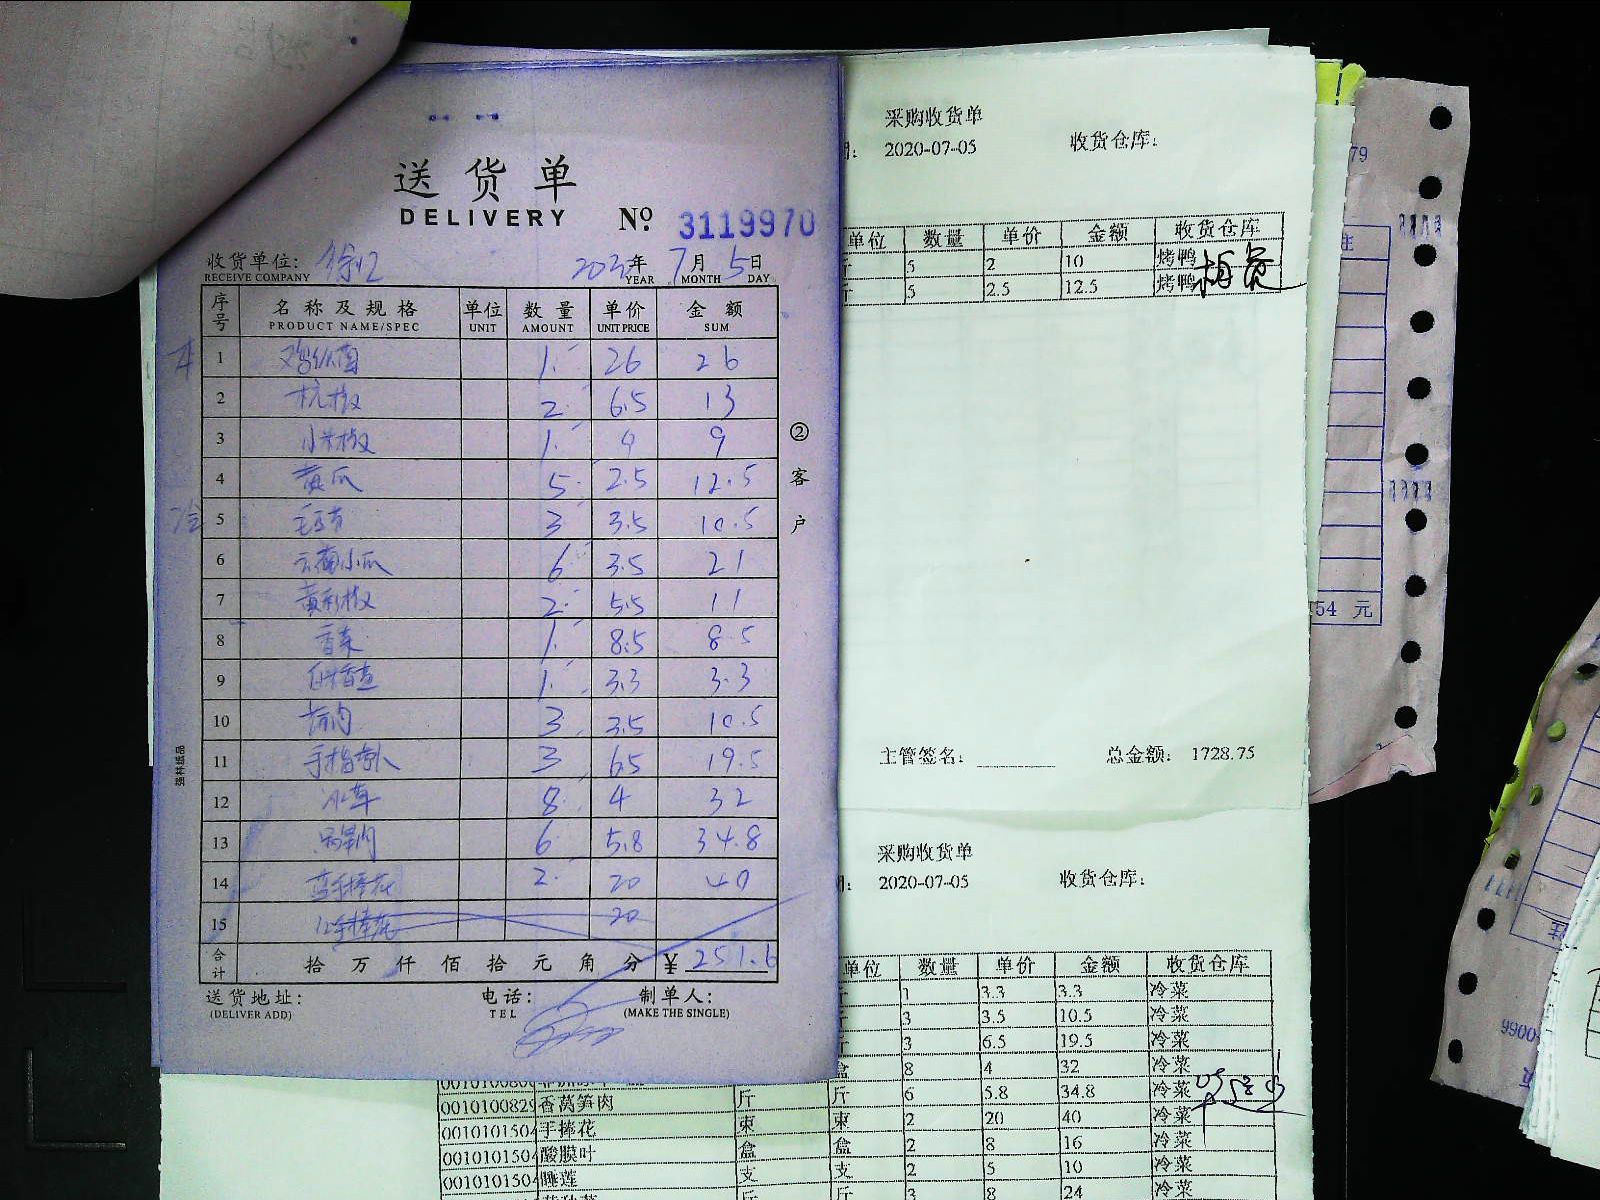 送货单
DELIVERY № 3119970
收货单位: 徐汇 2020年 7月 5日
RECEIVE COMPANY YEAR MONTH DAY
序号 名称及规格 单位 数量 单价 金额
PRODUCT NAME/SPEC UNIT AMOUNT UNIT PRICE SUM
1 鸡枞菌 1 26 26
2 杭椒 2 6.5 13
3 小米椒 1 9 9
4 黄瓜 5 2.5 12.5
5 毛豆节 3 3.5 10.5
6 云南小瓜 6 3.5 21
7 黄彩椒 2 5.5 11
8 香菜 1 8.5 8.5
9 1 3.3 3.3
10 3 3.5 10.5
11 手指 3 6.5 19.5
12 冰草 8 4 32
13 6 5.8 34.8
14 手捧花 2 20 40
15 手捧花 20
合计 拾万仟佰拾元角分 ¥ 251.6
送货地址: 电话: 制单人:
(DELIVER ADD) TEL (MAKE THE SINGLE)
②客户
强林纸品
采购收货单
2020-07-05 收货仓库:
单位 数量 单价 金额 收货仓库
斤 5 2 10 烤鸭
斤 5 2.5 12.5 烤鸭
主管签名: 总金额: 1728.75
采购收货单
2020-07-05 收货仓库:
单位 数量 单价 金额 收货仓库
斤 1 3.3 3.3 冷菜
斤 3 3.5 10.5 冷菜
斤 3 6.5 19.5 冷菜
盒 8 4 32 冷菜
0010100829 香莴笋肉 斤 斤 6 5.8 34.8 冷菜
001010150 手捧花 束 束 2 20 40 冷菜
001010150 酸膜叶 盒 盒 2 8 16 冷菜
001010150 睡莲 支 支 2 5 10 冷菜
斤 斤 3 8 24 冷菜
79
注
54 元
9900